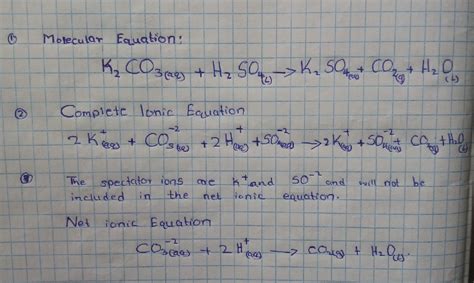 ① Molecular Equation:
K₂CO₃(aq) + H₂SO₄(l) → K₂SO₄(aq) + CO₂(g) + H₂O(l)
② Complete Ionic Equation
2K⁺(aq) + CO₃⁻²(aq) + 2H⁺(aq) + SO₄⁻²(aq) → 2K⁺(aq) + SO₄⁻²(aq) + CO₂(g) + H₂O(l)
③ The spectator ions are K⁺ and SO⁻² and will not be
included in the net ionic equation.
Net ionic Equation
CO₃⁻²(aq) + 2H⁺(aq) → CO₂(g) + H₂O(l).